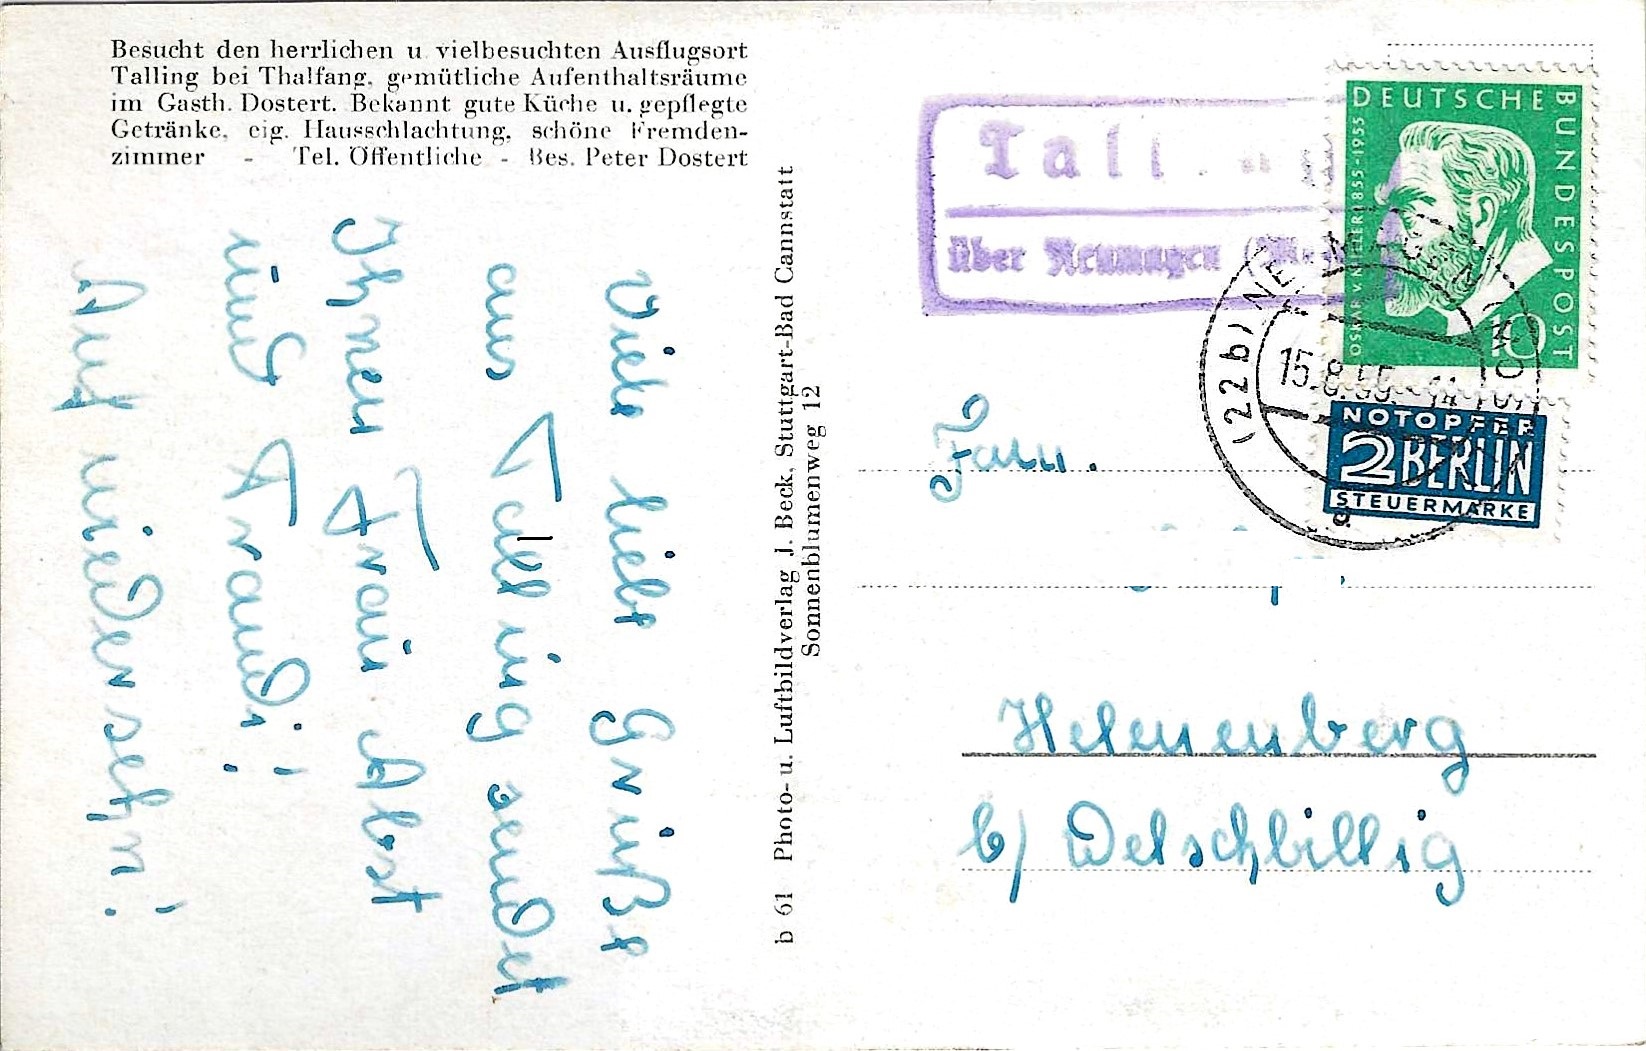 Besucht den herrlichen u vielbesuchten Ausflugsort
Talling bei Thalfang, gemütliche Aufenthaltsräume
im Gasth. Dostert. Bekannt gute Küche u. gepflegte
Getränke, eig. Hausschlachtung, schöne Fremden-
zimmer - Tel. Öffentliche - Bes. Peter Dostert
Viele liebe Grüße
aus Talling sendet
Ihnen Frau Abst
und Traudi!
Auf wiedersehn!
b 61 Photo- u. Luftbildverlag J. Beck, Stuttgart-Bad Cannstatt
Sonnenblumenweg 12
über Neumagen
DEUTSCHE BUNDESPOST
OSKAR V. MILLER 1855-1955
10
(22b) NEUMAGEN
15.8.55
a
NOTOPFER
2 BERLIN
STEUERMARKE
Helenenberg
b/ Welschbillig